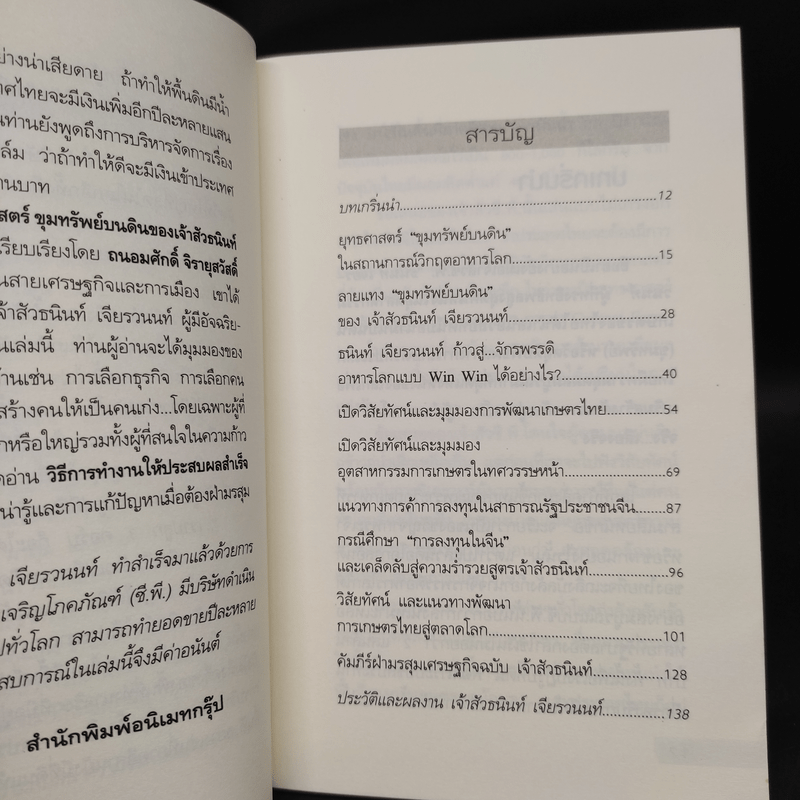 ย่างน่าเสียดาย ถ้าทำให้พื้นดินมีน้ำ
ทศไทยจะมีเงินเพิ่มอีกปีละหลายแสน
นท่านยังพูดถึงการบริหารจัดการเรื่อง
ว่าถ้าทำให้ดีจะมีเงินเข้าประเทศ
านบาท
สตร์ ขุมทรัพย์บนดินของเจ้าสัวธนินท์
เรียบเรียงโดย ถนอมศักดิ์ จิรายุสวัสดิ์
นสายเศรษฐกิจและการเมือง เขาได้
จ้าสัวธนินท์ เจียรวนนท์ ผู้มีอัจฉริย-
นเล่มนี้ ท่านผู้อ่านจะได้มุมมองของ
ด้านเช่น การเลือกธุรกิจ การเลือกคน
สร้างคนให้เป็นคนเก่ง...โดยเฉพาะผู้ที่
กหรือใหญ่รวมทั้งผู้ที่สนใจในความก้าว
ดอ่าน วิธีการทำงานให้ประสบผลสำเร็จ
น่ารู้และการแก้ปัญหาเมื่อต้องฝ่ามรสุม
เจียรวนนท์ ทำสำเร็จมาแล้วด้วยการ
เจริญโภคภัณฑ์ (ซี.พี.) มีบริษัทดำเนิน
ปทั่วโลก สามารถทำยอดขายปีละหลาย
สบการณ์ในเล่มนี้จึงมีค่าอนันต์
สำนักพิมพ์อนิเมทกรุ๊ป
สารบัญ
บทเกริ่นนำ...12
ยุทธศาสตร์ "ขุมทรัพย์บนดิน"
ในสถานการณ์วิกฤตอาหารโลก...15
ลายแทง "ขุมทรัพย์บนดิน"
ของ เจ้าสัวธนินท์ เจียรวนนท์...28
ธนินท์ เจียรวนนท์ ก้าวสู่...จักรพรรดิ
อาหารโลกแบบ Win Win ได้อย่างไร?...40
เปิดวิสัยทัศน์และมุมมองการพัฒนาเกษตรไทย...54
เปิดวิสัยทัศน์และมุมมอง
อุตสาหกรรมการเกษตรในทศวรรษหน้า...69
แนวทางการค้าการลงทุนในสาธารณรัฐประชาชนจีน...87
กรณีศึกษา "การลงทุนในจีน"
และเคล็ดลับสู่ความร่ำรวยสูตรเจ้าสัวธนินท์...96
วิสัยทัศน์ และแนวทางพัฒนา
การเกษตรไทยสู่ตลาดโลก...101
คัมภีร์ฝ่ามรสุมเศรษฐกิจฉบับ เจ้าสัวธนินท์...128
ประวัติและผลงาน เจ้าสัวธนินท์ เจียรวนนท์...138